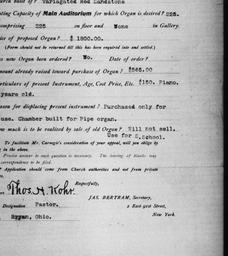 built of? Variagated Red Sandstone
ating Capacity of Main Auditorium for which Organ is desired? 225.
omprising 225 on floor and None in Gallery.
ice of proposed Organ? $ 1800.00.
(Form should not be returned till this has been required into and settled.)
s new Organ been ordered? No. Date of order?
mount already raised toward purchase of Organ? $565.00
rticulars of present Instrument, Age, Cost Price, Etc. $150. Piano.
years old.
ason for displacing present instrument? Purchased only for
use. Chamber built for Pipe organ.
ow much is to be realized by sale of old Organ? Will not sell.
Use for S.School.
To facilitate Mr. Carnegie's consideration of your appeal, will you oblig
in the above.
Precise answer to each question is necessary. The leaving of blanks may
correspondence to be filed.
Application should come from Church authorities and not from private
Respectfully,
Thos. H. Kohr.
JAS. BERTRAM, Secretary,
Designation Pastor. 2 East 91st Street,
Bryan, Ohio. New York.